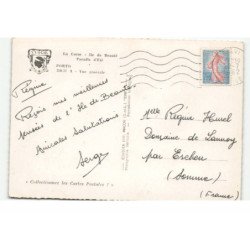 La Corse - Ile de Beauté
Paradis d'Été
PORTO
Vue générale
Régine
Reçois mes meilleures
pensées de l'Ile de Beauté
Amicales Salutations
Serge
« Collectionnez les Cartes Postales ! »
Mlle Régine Hurel
Domaine de Lannoy
par Escheu
(Somme)
(France)